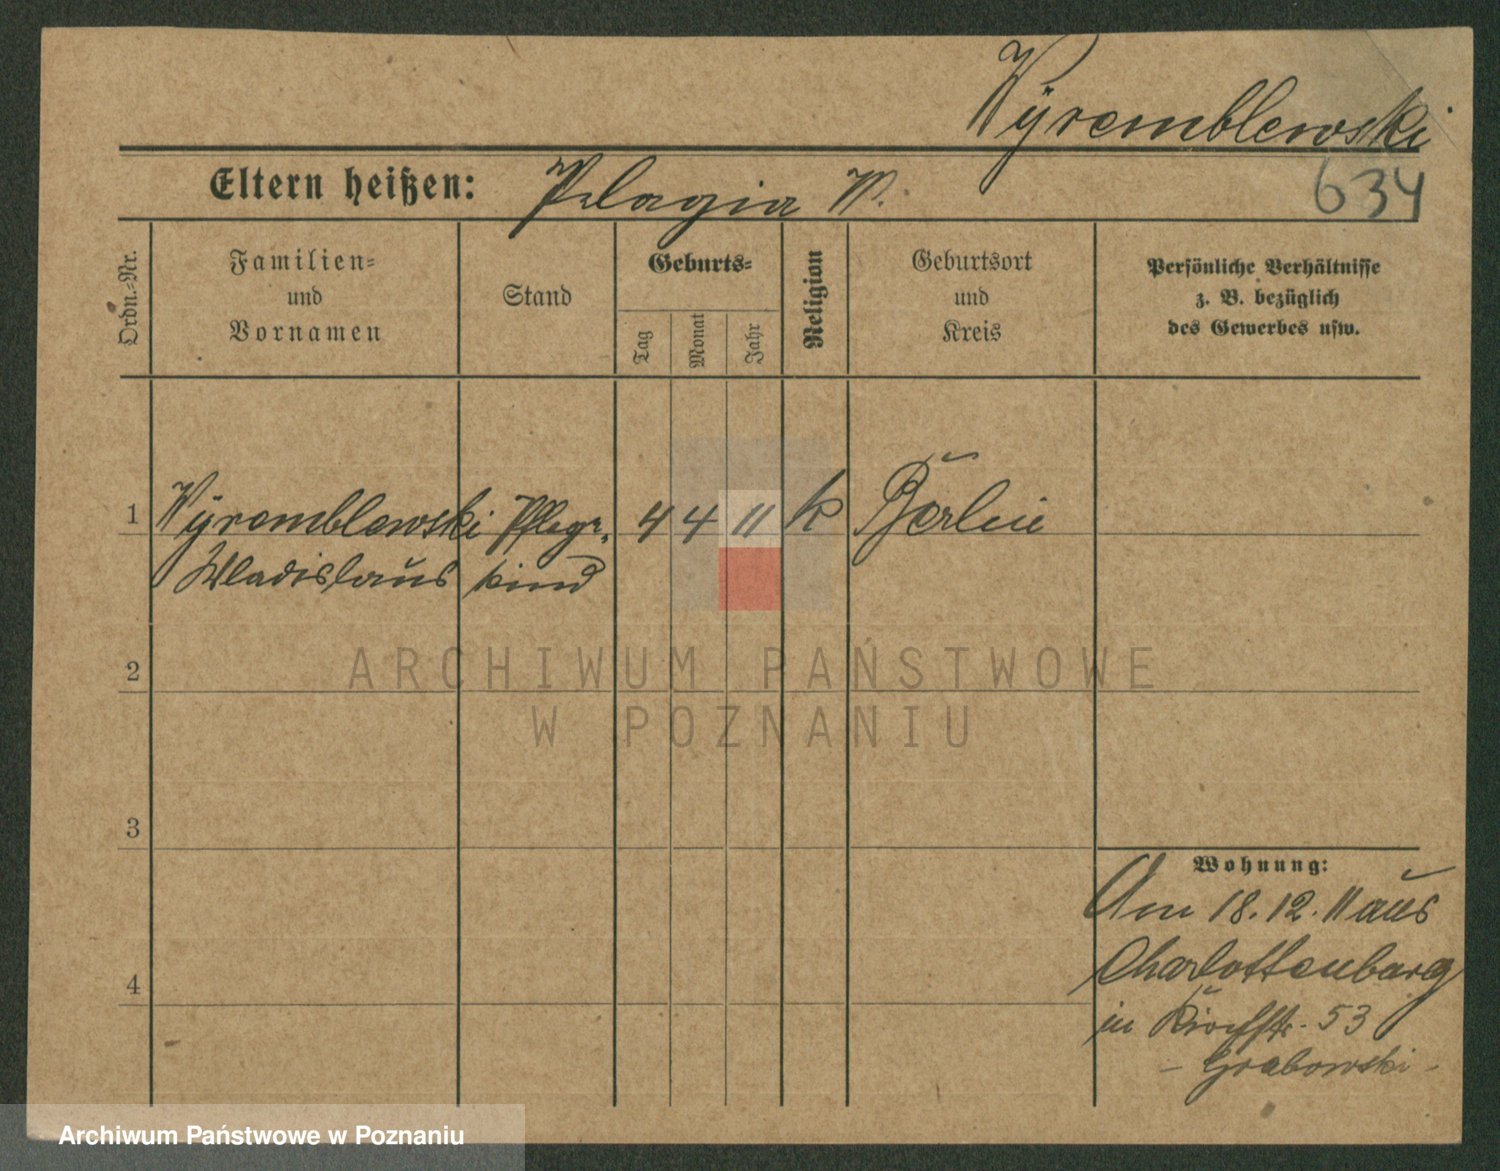 Wÿremblewski
Eltern heißen: Pelagia W.
634
Ordn.-Nr.
Familien=
und
Vornamen
Stand
Geburts=
Tag
Monat
Jahr
Religion
Geburtsort
und
Kreis
Persönliche Verhältnisse
z. B. bezüglich
des Gewerbes usw.
1 Wÿremblewski Pflege- 4 4 11 k Berlin
Wladislaus kind
2
3
4
Wohnung:
Am 18.12.11 aus
Charlottenburg
in 53
- Grabowski -
ARCHIWUM PAŃSTWOWE
W POZNANIU
Archiwum Państwowe w Poznaniu